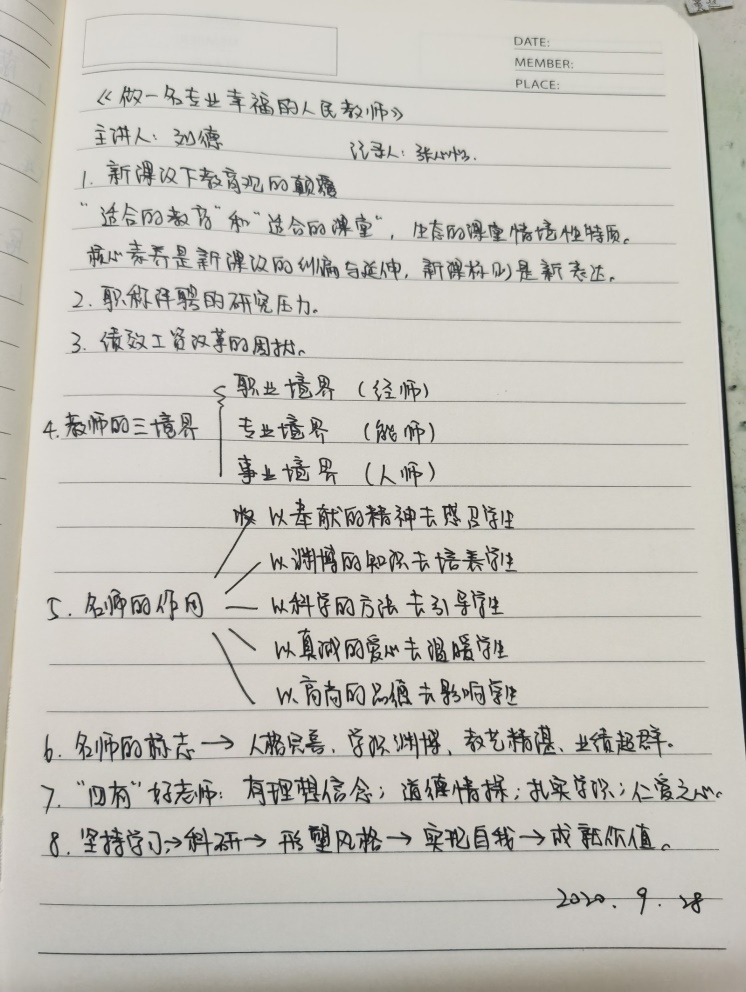 DATE:
MEMBER:
PLACE:
《做一名专业幸福的人民教师》
主讲人：刘德
记录人：张
1. 新课改下教育观的颠覆
“适合的教育”和“适合的课堂”，生态的课堂情境性特质。
核心素养是新课改的纠偏与延伸，新课标则是新表达。
2. 职称评聘的研究压力。
3. 绩效工资改革的困扰。
4. 教师的三境界
职业境界（经师）
专业境界（能师）
事业境界（人师）
以奉献的精神去感召学生
以渊博的知识去培养学生
5. 名师的作用 以科学的方法去引导学生
以真诚的爱心去温暖学生
以高尚的品德去影响学生
6. 名师的标志→人格完善、学识渊博、教艺精湛、业绩超群。
7. “四有”好老师：有理想信念；道德情操；扎实学识；仁爱之心。
8. 坚持学习→科研→形塑风格→实现自我→成就价值。
2020.9.28